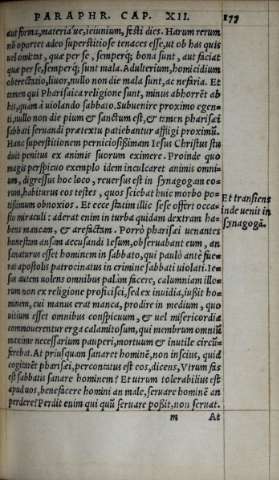 PARAPHR. CAP. XII. 177
aut forma, materia' ue, ieiunium, festi dies. Harum rerum
nō oportet adeo superstitiose tenaces esse, ut ob has quis
uel omittat, quæ per se, semperq; bona sunt, aut faciat
quæ per se, semperq; sunt mala. Adulterium, homicidium
obtrectatio, liuor, nullo non die mala sunt, ac nefaria. Et
tamen qui Pharisaica religione sunt, minus abhorrēt ab
his, quàm à uiolando sabbato. Subuenire proximo egen-
ti, nullo non die pium & sanctum est, & tamen pharisæi
sabbati seruandi prætextu patiebantur affligi proximū.
Hanc superstitionem perniciosissimam Iesus Christus stu
duit penitus ex animis suorum eximere. Proinde quo
magis perspicuo exemplo idem inculcaret animis omni-
um, digressus hoc loco, reuersus est in synagogam eo-
rum, habiturus eos testes, quos sciebat huic morbo po-
tissimum obnoxios. Et ecce statim illic sese offert occa-
sio miraculi: aderat enim in turba quidam dextram ha-
bens mancam, & arefactam. Porrò pharisæi uenantes
honestam ansam accusandi Iesum, obseruabant eum, an
sanaturus esset hominem in sabbato, qui paulò antè fue-
rat apostolis patrocinatus in crimine sabbati uiolati. Ie-
sus autem uolens omnibus palàm facere, calumniam illo-
rum non ex religione proficisci, sed ex inuidia, iussit ho-
minem, cui manus erat manca, prodire in medium, quo
uitium esset omnibus conspicuum, & uel misericordia
commouerentur erga calamitosum, qui membrum omniū
maximè necessarium pauperi, mortuum & inutile circū-
ferebat. At priusquam sanaret hominē, non inscius, quid
cogitarēt pharisæi, percontatus est eos, dicens, Virum fas
est sabbatis sanare hominem? Et utrum tolerabilius est
apud uos, benefacere homini an male, seruare hominē an
perdere? Perdit enim qui quū seruare possit, non seruat.
m At
Et transiens
inde uenit in
synagogā.